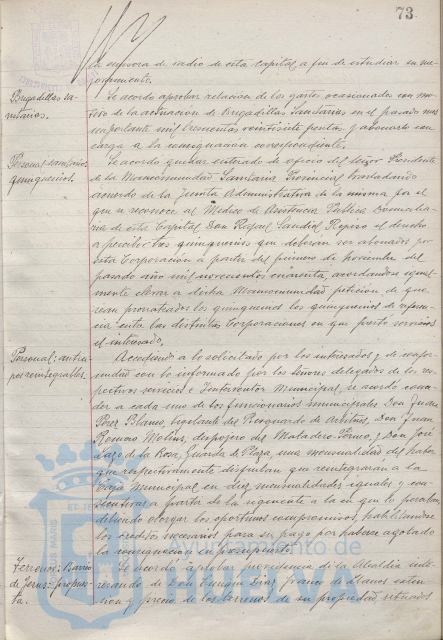 73
la emisora de radio de esta capital a fin de estudiar su me-
joramiento.
Brigadillas sa-
nitarias.
Se acordó aprobar relación de los gastos ocasionados con mo-
tivo de la actuación de Brigadillas Sanitarias en el pasado mes
importante mil trescientas veintisiete pesetas y abonarlo con
cargo a la consignación correspondiente.
Personal sanitario:
quinquenios.
Se acordó quedar enterado de oficio del Señor Presidente
de la Mancomunidad Sanitaria Provincial trasladando
acuerdo de la Junta Administrativa de la misma por el
que se reconoce al Médico de Asistencia Pública Domicilia-
ria de esta Capital Don Rafael Repiso el derecho
a percibir tres quinquenios que deberán ser abonados por
esta Corporación a partir del primero de Noviembre del
pasado año mil novecientos cuarenta acordándose igual-
mente elevar a dicha Mancomunidad petición de que
sean prorrateados los quinquenios los quinquenios de referen-
cia entre las distintas Corporaciones en que prestó servicios
el interesado.
Personal: antici-
pos reintegrables.
Accediendo a lo solicitado por los interesados y de confor-
midad con lo informado por los Señores delegados de los res-
pectivos servicios e Interventor Municipal, se acordó conce-
der a cada uno de los funcionarios municipales Don Juan
Pérez Blanco, Vigilante del Resguardo de Arbitrios, Don Juan
Romero Molins, despojero del Matadero Público y Don José
Lazo de la Rosa, Guarda de Plaza, una mensualidad del haber
que respectivamente disfrutan que reintegrarán a la
Caja municipal en diez mensualidades iguales y con-
secutivas a partir de la siguiente a la en que lo perciban,
debiendo otorgar los oportunos compromisos, habilitándose
los créditos necesarios para su pago por haberse agotado
la consignación en presupuesto.
Terrenos: Barrio
de Jesús: propues-
ta.
Se acordó aprobar providencia de la Alcaldía inte-
resando de Don Enrique Díaz Franco de Llanos exten-
sión y precio de los terrenos de su propiedad situados
Ayuntamiento de